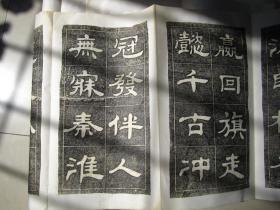 嬴回旗走
懿千古冲
冠發伴人
無寐秦淮